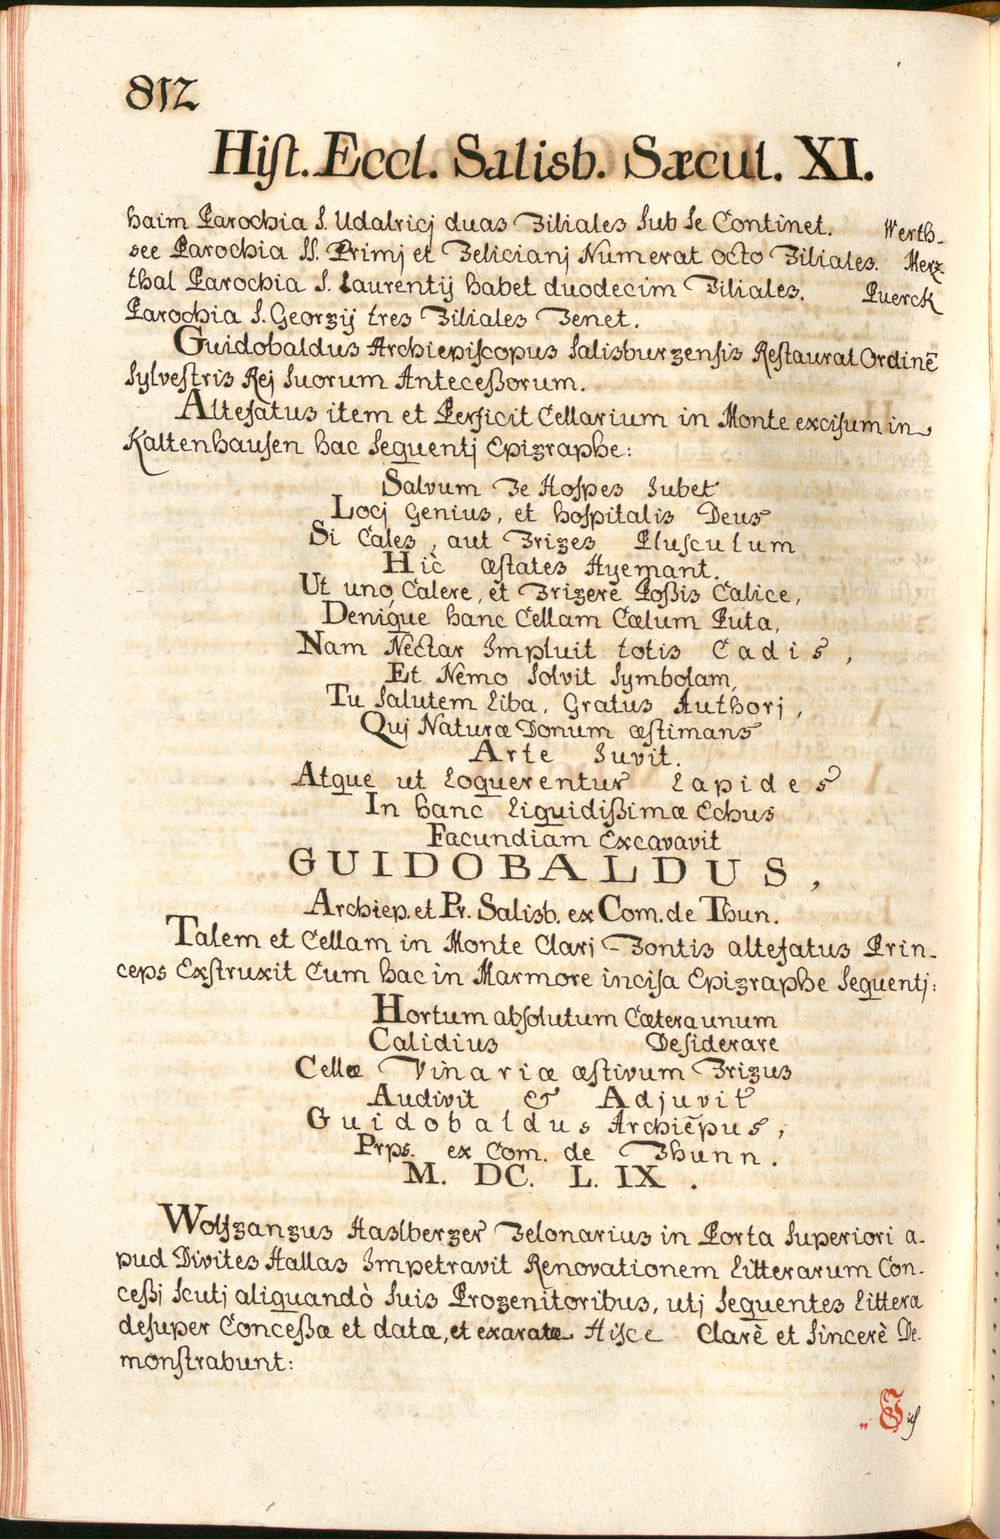 812
Hist. Eccl. Salisb. Sæcul. XI.
haim Parochia S. Udalricj duas Filiales sub se Continet. Werth-
see Parochia SS. Primj et Felicianj Numerat octo Filiales. Merz
thal Parochia S. Laurentij habet duodecim Filiales. Puerck
Parochia S. Georgij tres Filiales Tenet.
Guidobaldus Archiepiscopus Salisburgensis Restaurat Ordinē
Sylvestris Rej suorum Anteceßorum.
Altefatus item et Perficit Cellarium in Monte excisum in
Kaltenhausen hac sequentj Epigraphe:
Salvum Te Hospes Jubet
Locj Genius, et hospitalis Deus
Si Cales, aut Friges Plusculum
Hic æstates Hyemant.
Ut uno Calere, et Frigere Poßis Calice,
Denique hanc Cellam Cœlum Puta,
Nam Nectar Impluit totis Cadis,
Et Nemo Solvit Symbolam,
Tu Salutem Liba, Gratus Authorj,
Quj Naturæ Donum æstimans
Arte Juvit.
Atque ut Loquerentur Lapides
In hanc Liquidißimæ Echus
Facundiam Excavavit
GUIDOBALDUS,
Archiep. et Pr. Salisb. ex Com. de Thun.
Talem et Cellam in Monte Clarj Fontis altefatus Prin-
ceps Exstruxit Cum hac in Marmore incisa Epigraphe Sequentj:
Hortum absolutum Cætera unum
Calidius Desiderare
Cellæ Vinariæ æstivum Frigus
Audivit & Adjuvit
Guidobaldus Archiēpus,
Prps. ex Com. de Thunn.
M. DC. L. IX.
Wolfgangus Haslberger Telonarius in Porta Superiori a-
pud Divites Hallas Impetravit Renovationem Litterarum Con-
ceßj Scutj aliquandò Suis Progenitoribus, utj Sequentes Littera
desuper Conceßæ et datæ, et exaratæ Hisce Clarè et Sincerè De-
monstrabunt: